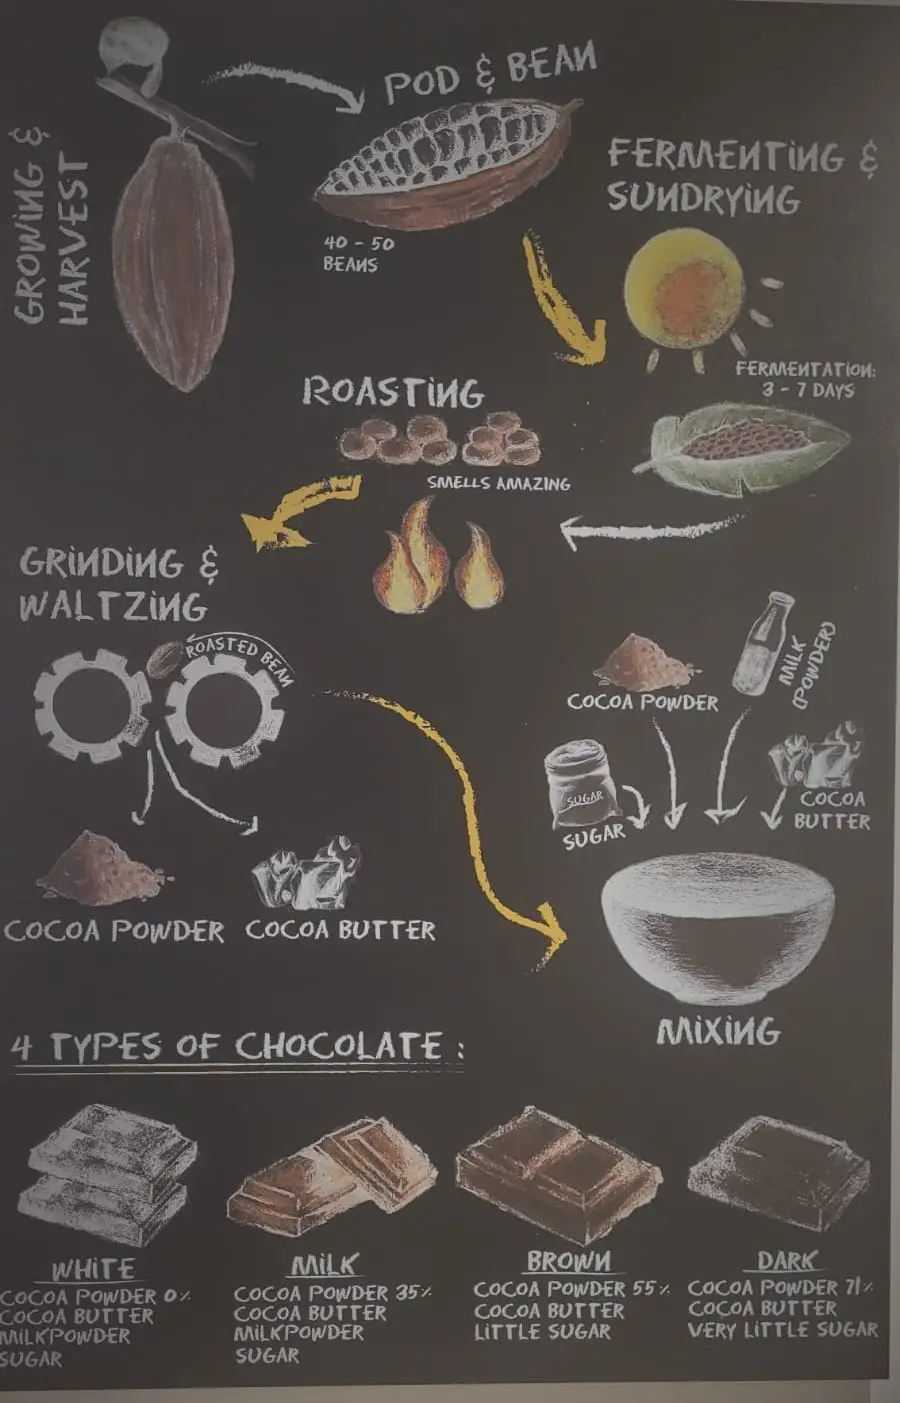 GROWING &
HARVEST
POD & BEAN
40 - 50
BEANS
FERMENTING &
SUNDRYING
FERMENTATION:
3 - 7 DAYS
ROASTING
SMELLS AMAZING
GRINDING &
WALTZING
ROASTED BEAN
COCOA POWDER
COCOA BUTTER
COCOA POWDER
MILK
(POWDER)
SUGAR
SUGAR
COCOA
BUTTER
MIXING
4 TYPES OF CHOCOLATE :
WHITE
COCOA POWDER 0%
COCOA BUTTER
MILKPOWDER
SUGAR
MILK
COCOA POWDER 35%
COCOA BUTTER
MILKPOWDER
SUGAR
BROWN
COCOA POWDER 55%
COCOA BUTTER
LITTLE SUGAR
DARK
COCOA POWDER 71%
COCOA BUTTER
VERY LITTLE SUGAR